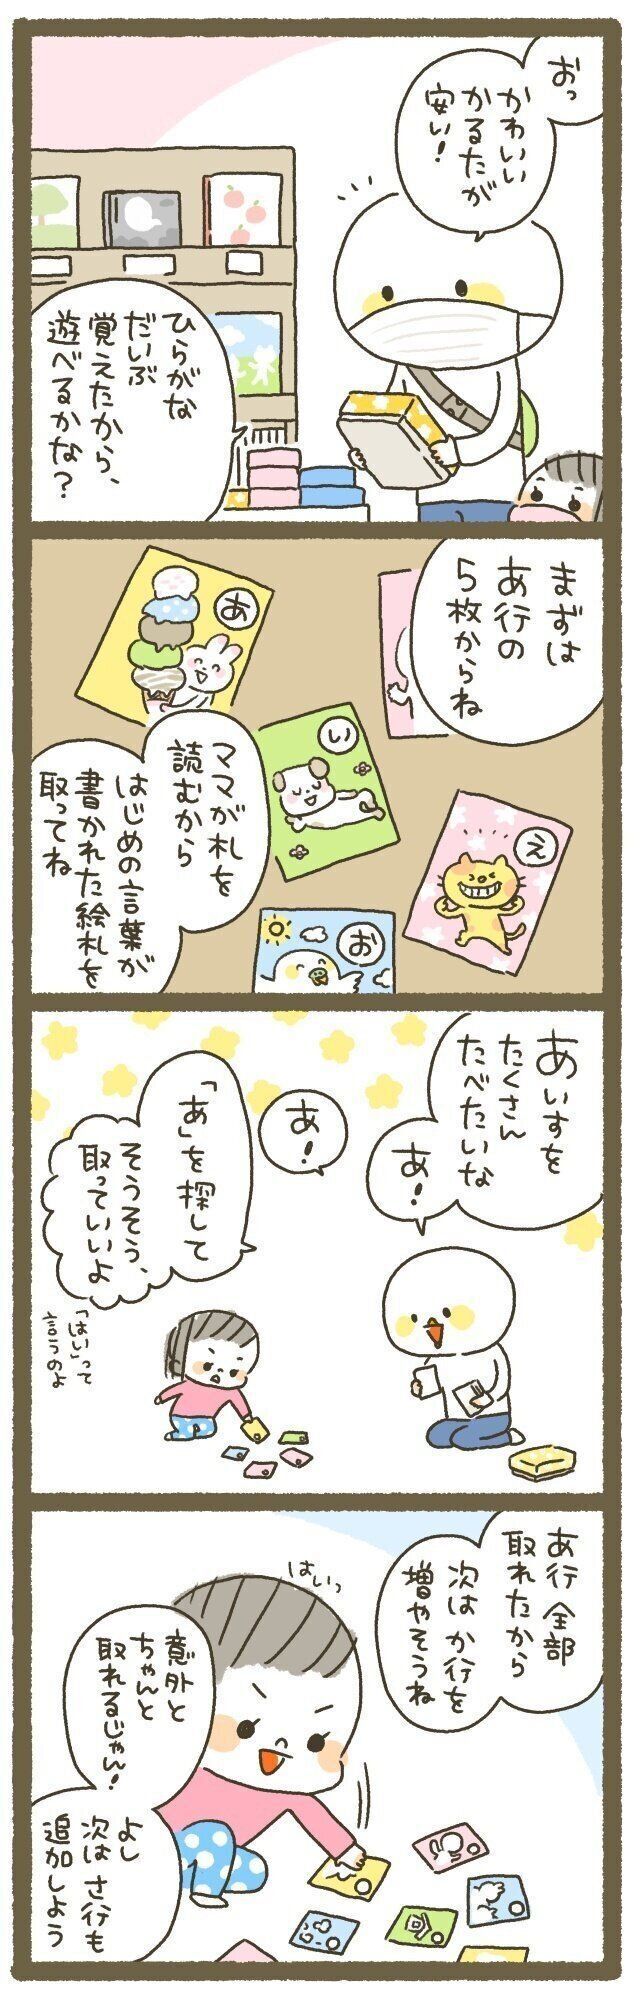 おっ
かわいい
かるたが
安い!
ひらがな
だいぶ
覚えたから、
遊べるかな?
まずは
あ行の
5枚からね
あ
い
え
お
ママが札を
読むから
はじめの言葉が
書かれた絵札を
取ってね
あいすを
たくさん
たべたいな
あ!
あ!
「あ」を探して
そうそう、
取っていいよ
「はい」って
言うのよ
あ行全部
取れたから
次はか行を
増やそうね
はいっ
意外と
ちゃんと
取れるじゃん!
よし
次はさ行も
追加しよう